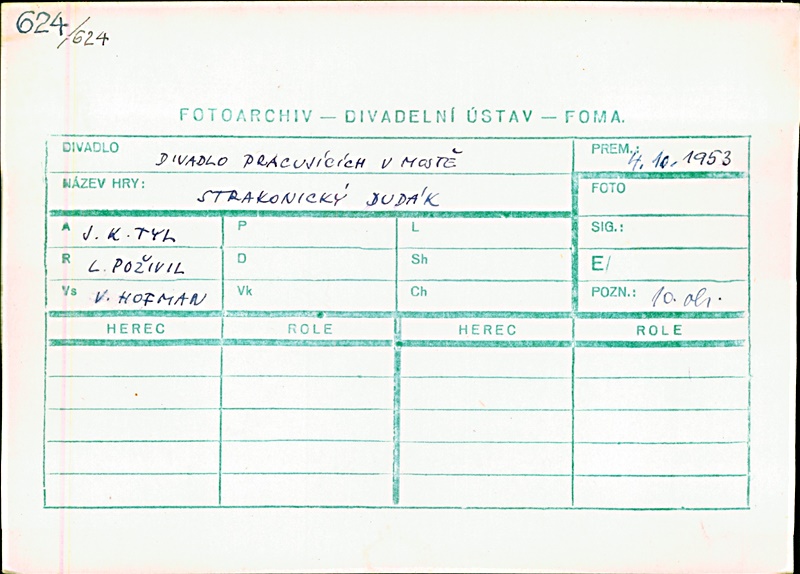 624/624
FOTOARCHIV — DIVADELNÍ ÚSTAV — FOMA.
DIVADLO DIVADLO PRACUJÍCÍCH V MOSTĚ PREM.: 4. 10. 1953
NÁZEV HRY: STRAKONICKÝ DUDÁK FOTO
A J. K. TYL P L SIG.:
R L. POŽIVIL D Sh E/
Vs V. HOFMAN Vk Ch POZN.: 10. obr.
HEREC ROLE HEREC ROLE